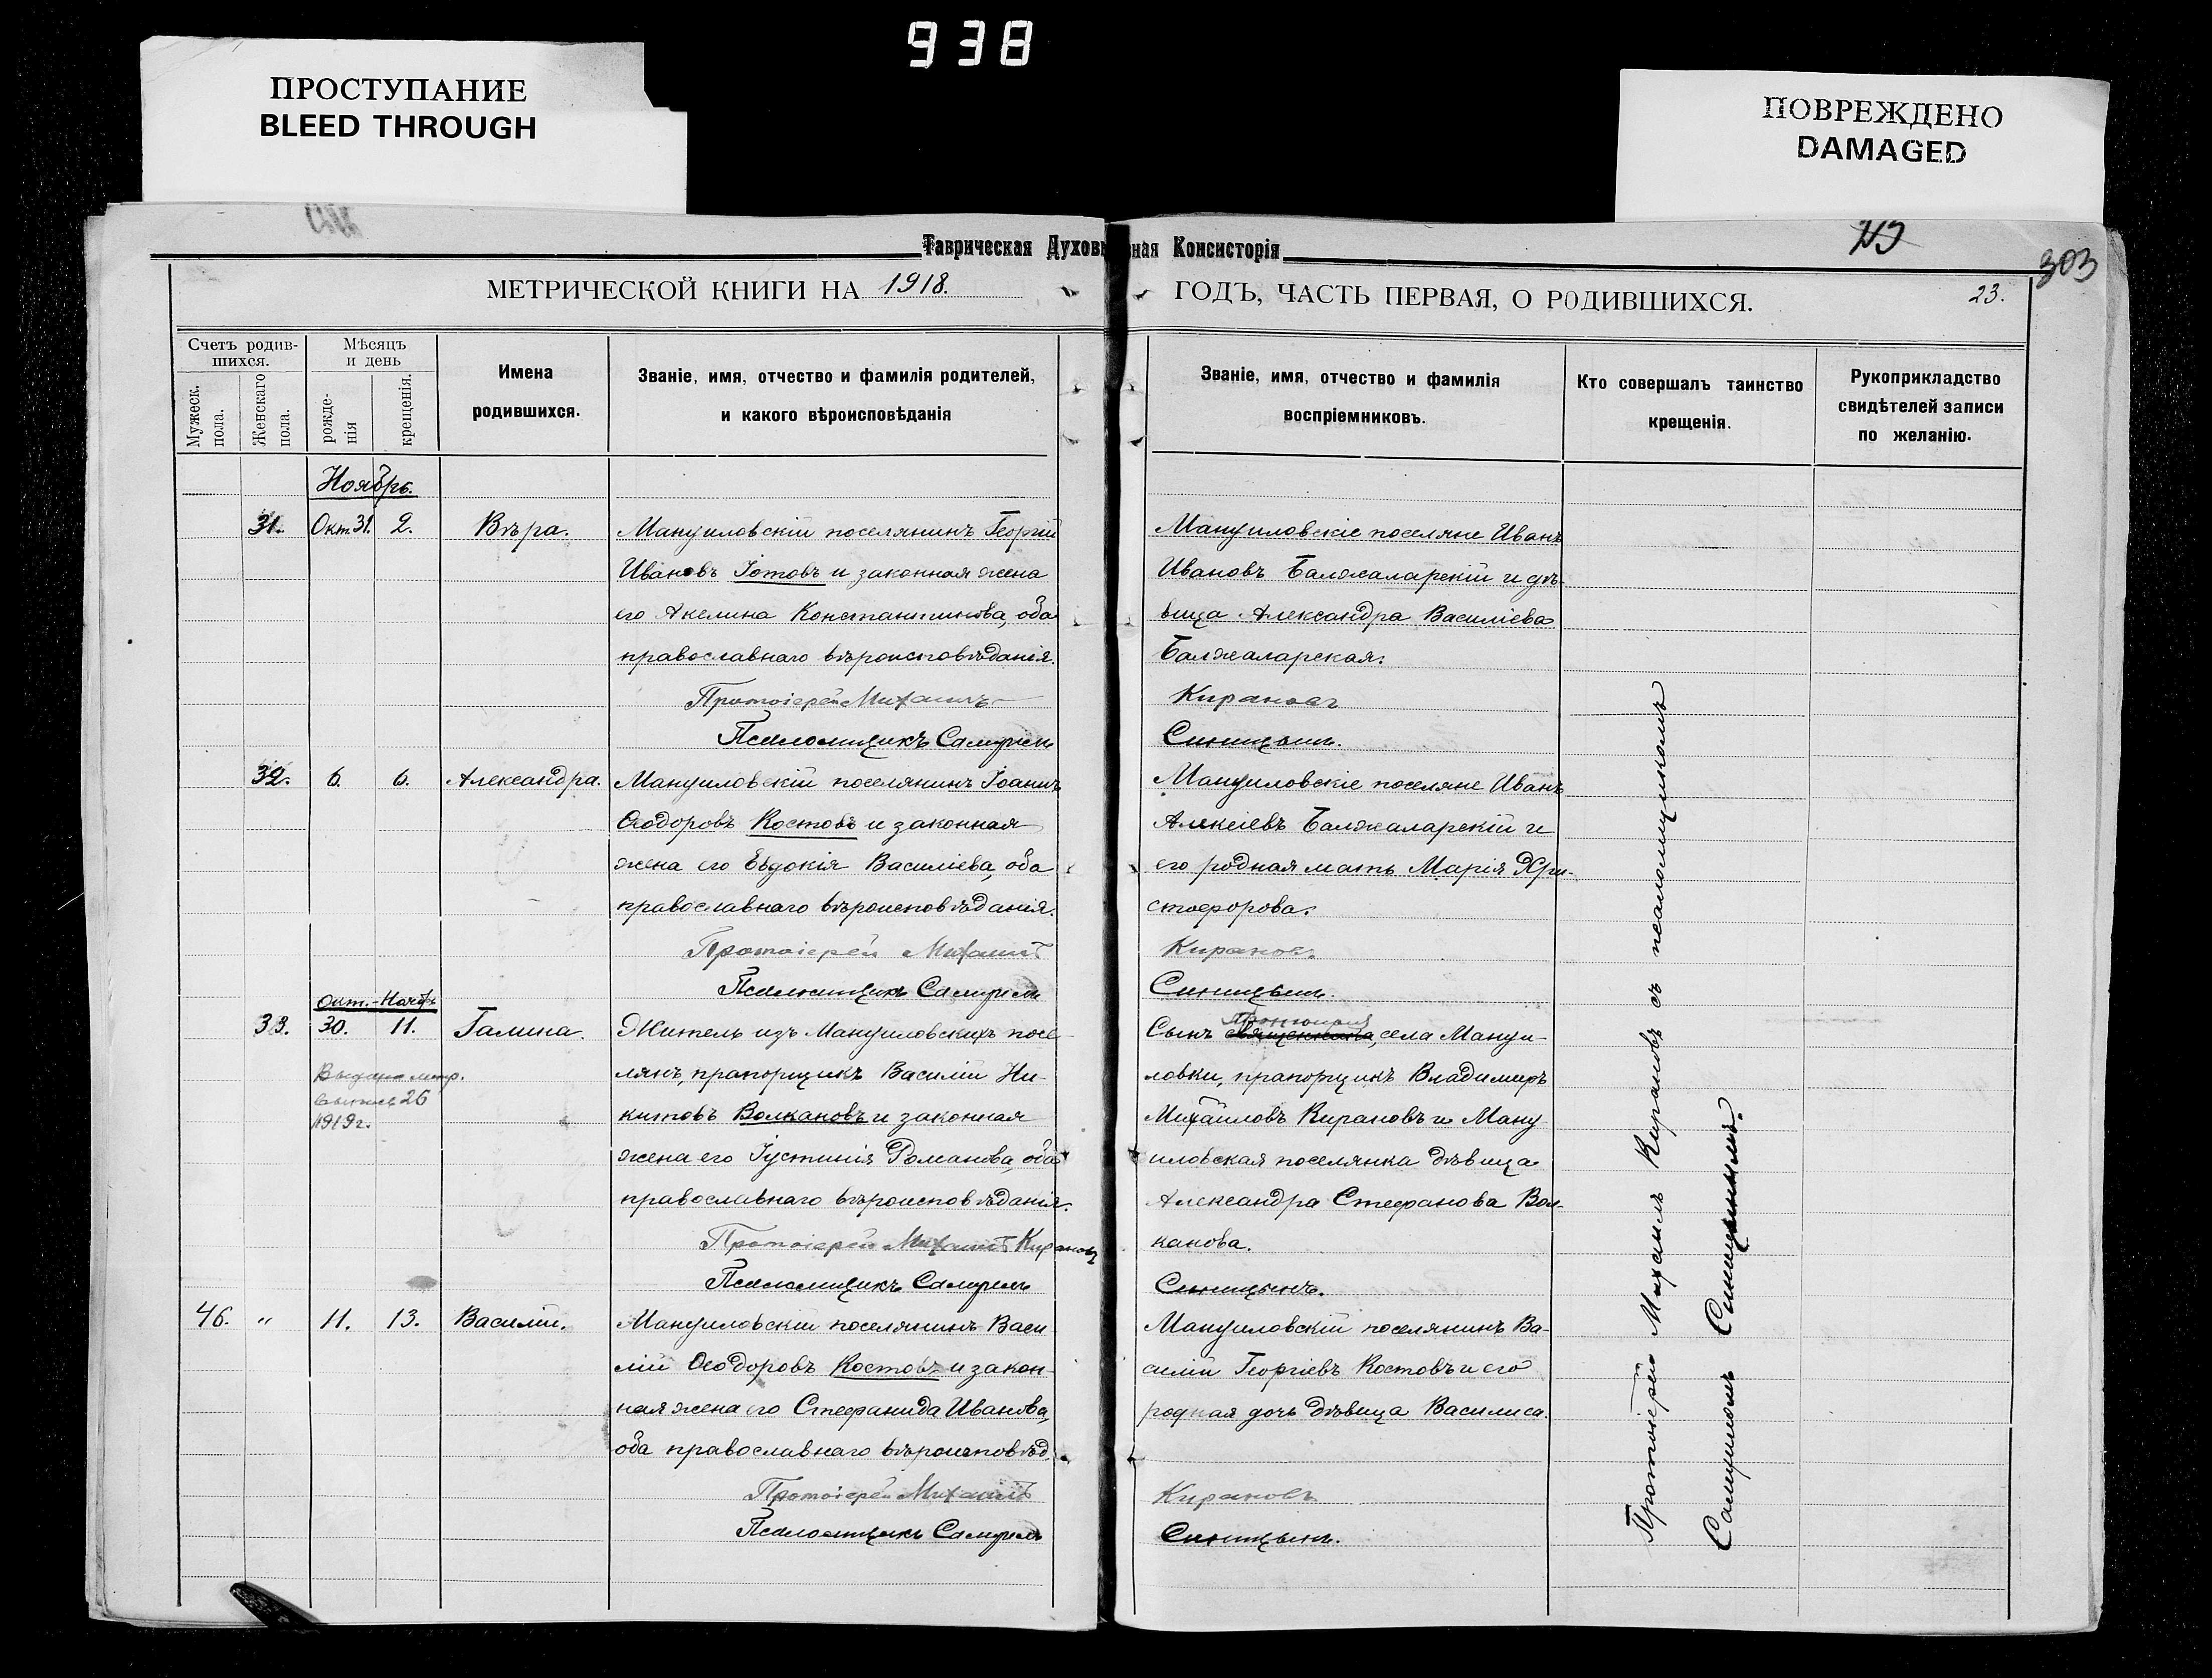 938
ПРОСТУПАНИЕ
BLEED THROUGH
ПОВРЕЖДЕНО
DAMAGED
Таврическая Духовная Консисторія
303
МЕТРИЧЕСКОЙ КНИГИ НА 1918. ГОДЪ, ЧАСТЬ ПЕРВАЯ, О РОДИВШИХСЯ.
23.
Счетъ родив-
шихся.
Мужеск.
пола.
Женскаго
пола.
Мѣсяцъ
и день
рожде-
нія
крещенія.
Имена
родившихся.
Званіе, имя, отчество и фамилія родителей,
и какого вѣроисповѣданія
Званіе, имя, отчество и фамилія
воспріемниковъ.
Кто совершалъ таинство
крещенія.
Рукоприкладство
свидѣтелей записи
по желанію.
Ноябрь.
31. Окт. 31. 2. Вѣра.
Мануиловскій поселянинъ Георгій
Ивановъ Іотовъ и законная жена
его Акелина Константинова, оба
православнаго вѣроисповѣданія.
Протоіерей Михаилъ
Псаломщикъ Самуилъ
Мануиловскіе поселяне Иванъ
Ивановъ Балжаларскій и дѣ-
вица Александра Василіева
Балжаларская.
Кирановъ
Синицынъ.
32. 6. 6. Александра.
Мануиловскій поселянинъ Іоаннъ
Ѳеодоровъ Костовъ и законная
жена его Евдокія Василіева, оба
православнаго вѣроисповѣданія.
Протоіерей Михаилъ
Псаломщикъ Самуилъ
Мануиловскіе поселяне Иванъ
Алексіевъ Балжаларскій и
его родная мать Марія Хри-
стофорова.
Кирановъ.
Синицынъ.
Окт.-Нояб.
33. 30. 11. Галина.
Выдана метр.
26
1919 г.
Житель изъ Мануиловскихъ посе-
лянъ, прапорщикъ Василій Ни-
китовъ Волкановъ и законная
жена его Іустинія Романова, оба
православнаго вѣроисповѣданія.
Протоіерей Михаилъ Кирановъ
Псаломщикъ Самуилъ
Сынъ священника, села Мануи-
ловки, прапорщикъ Владимиръ
Михаиловъ Кирановъ и Ману-
иловская поселянка дѣвица
Александра Стефанова Вол-
канова.
Синицынъ.
46. " 11. 13. Василій.
Мануиловскій поселянинъ Васи-
лій Ѳеодоровъ Костовъ и закон-
ная жена его Стефанида Иванова,
оба православнаго вѣроисповѣд.
Протоіерей Михаилъ
Псаломщикъ Самуилъ
Мануиловскій поселянинъ Ва-
силій Георгіевъ Костовъ и его
родная дочь дѣвица Василиса.
Кирановъ
Синицынъ.
Протоіерей Михаилъ Кирановъ съ псаломщикомъ
Самуиломъ Синицынымъ.